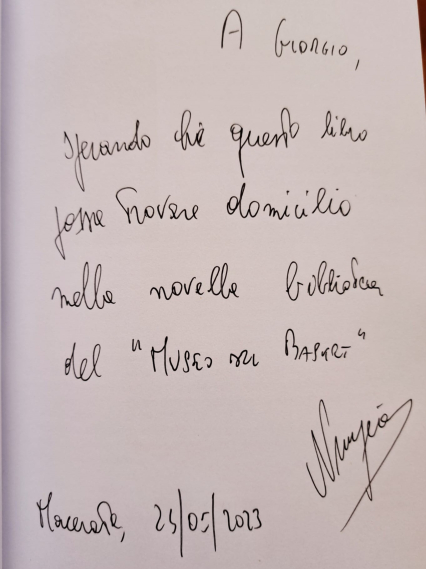 A GIORGIO,
sperando che questo libro
possa trovare domicilio
nella novella biblioteca
del "MUSEO DEL BASKET"
Macerata, 25/05/2023